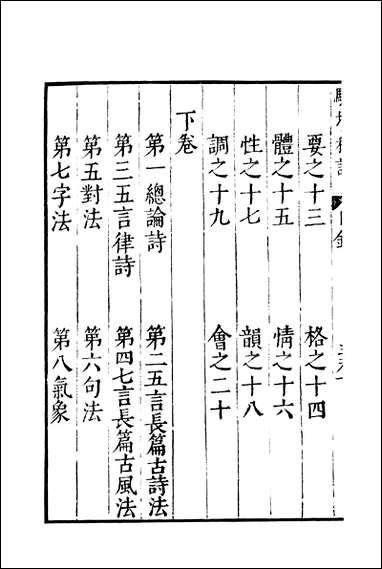 要之十三 格之十四
體之十五 情之十六
性之十七 韻之十八
調之十九 會之二十
下卷
第一總論詩 第二五言長篇古詩法
第三五言律詩 第四七言長篇古風法
第五對法 第六句法
第七字法 第八氣象